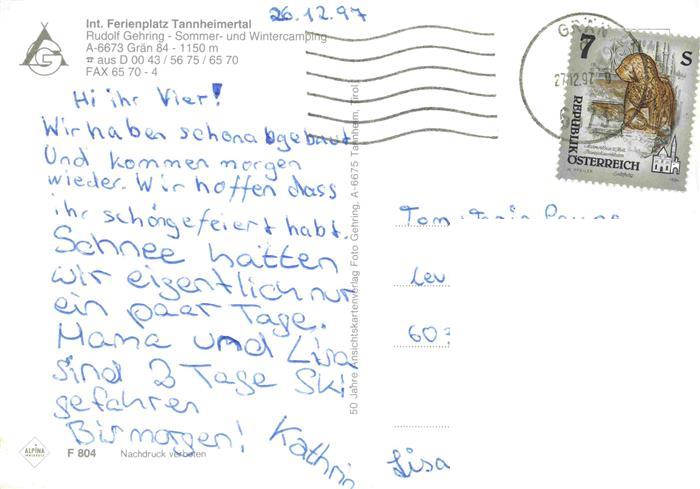 26.12.97
Int. Ferienplatz Tannheimertal
Rudolf Gehring - Sommer- und Wintercamping
A-6673 Grän 84 - 1150 m
☎ aus D 00 43 / 56 75 / 65 70
FAX 65 70 - 4
Hi ihr Vier!
Wir haben schon abgebaut
Und kommen morgen
wieder. Wir hoffen dass
ihr schön gefeiert habt.
Schnee hatten
wir eigentlich nur
ein paar Tage.
Mama und Lisa
sind 2 Tage Ski
gefahren
Bis morgen! Kathrin Lisa
ALPINA
F 804 Nachdruck verboten
50 Jahre Ansichtskartenverlag Foto Gehring, A-6675 Tannheim, Tirol
GRÄN
27.12.97
7 S
REPUBLIK
ÖSTERREICH
Tom
Lev
60